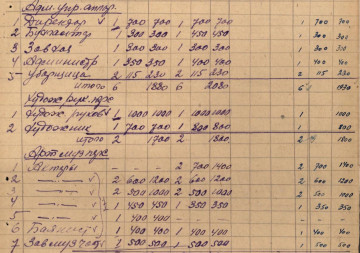 Адм. упр. аппар.
1 Директор 1 700 700 1 700 700 1 700 700
2 Бухгалтер 1 300 300 1 450 450 1 300 300
3 Завхоз 1 300 300 1 300 300 1 300 300
4 Администр 1 350 350 1 400 400 1 400 400
5 Уборщица 2 115 230 2 115 230 2 115 230
итого 6 1880 6 2080 6 1930
Худож. рук. ядро
1 Худож руков 1 1000 1000 1 1000 1000 1 1000
2 Художник 1 700 700 1 800 800 1 800
итого 2 1700 2 1800 2 1800
Арт муз цех
Актеры - - - 2 700 1400 2 700 1400
2 — 2 600 1200 2 600 1200 2 600 1200
3 — 2 500 1000 2 500 1000 2 500 1000
4 — 1 450 450 1 350 350 1 350 350
5 — 1 400 400 - - -
6 Баянист 1 400 400 1 400 400 1 400 400
7 Зав муз часть 1 500 500 1 500 500 1 500 500